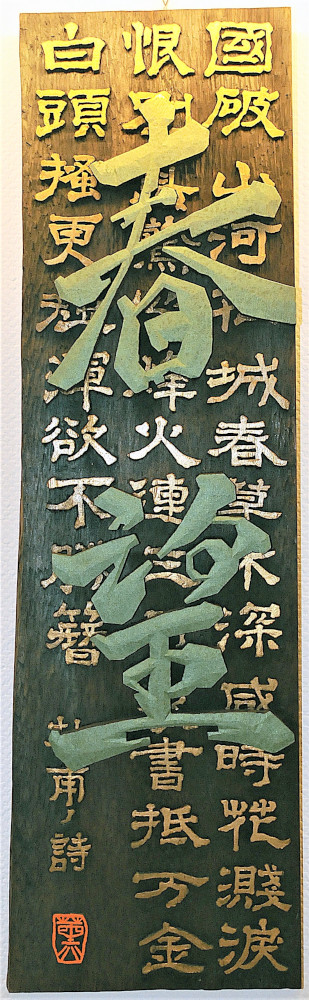 春望
國破山河在城春草木深感時花濺淚
恨別鳥驚心烽火連三月家書抵万金
白頭搔更短渾欲不勝簪
杜甫ノ詩